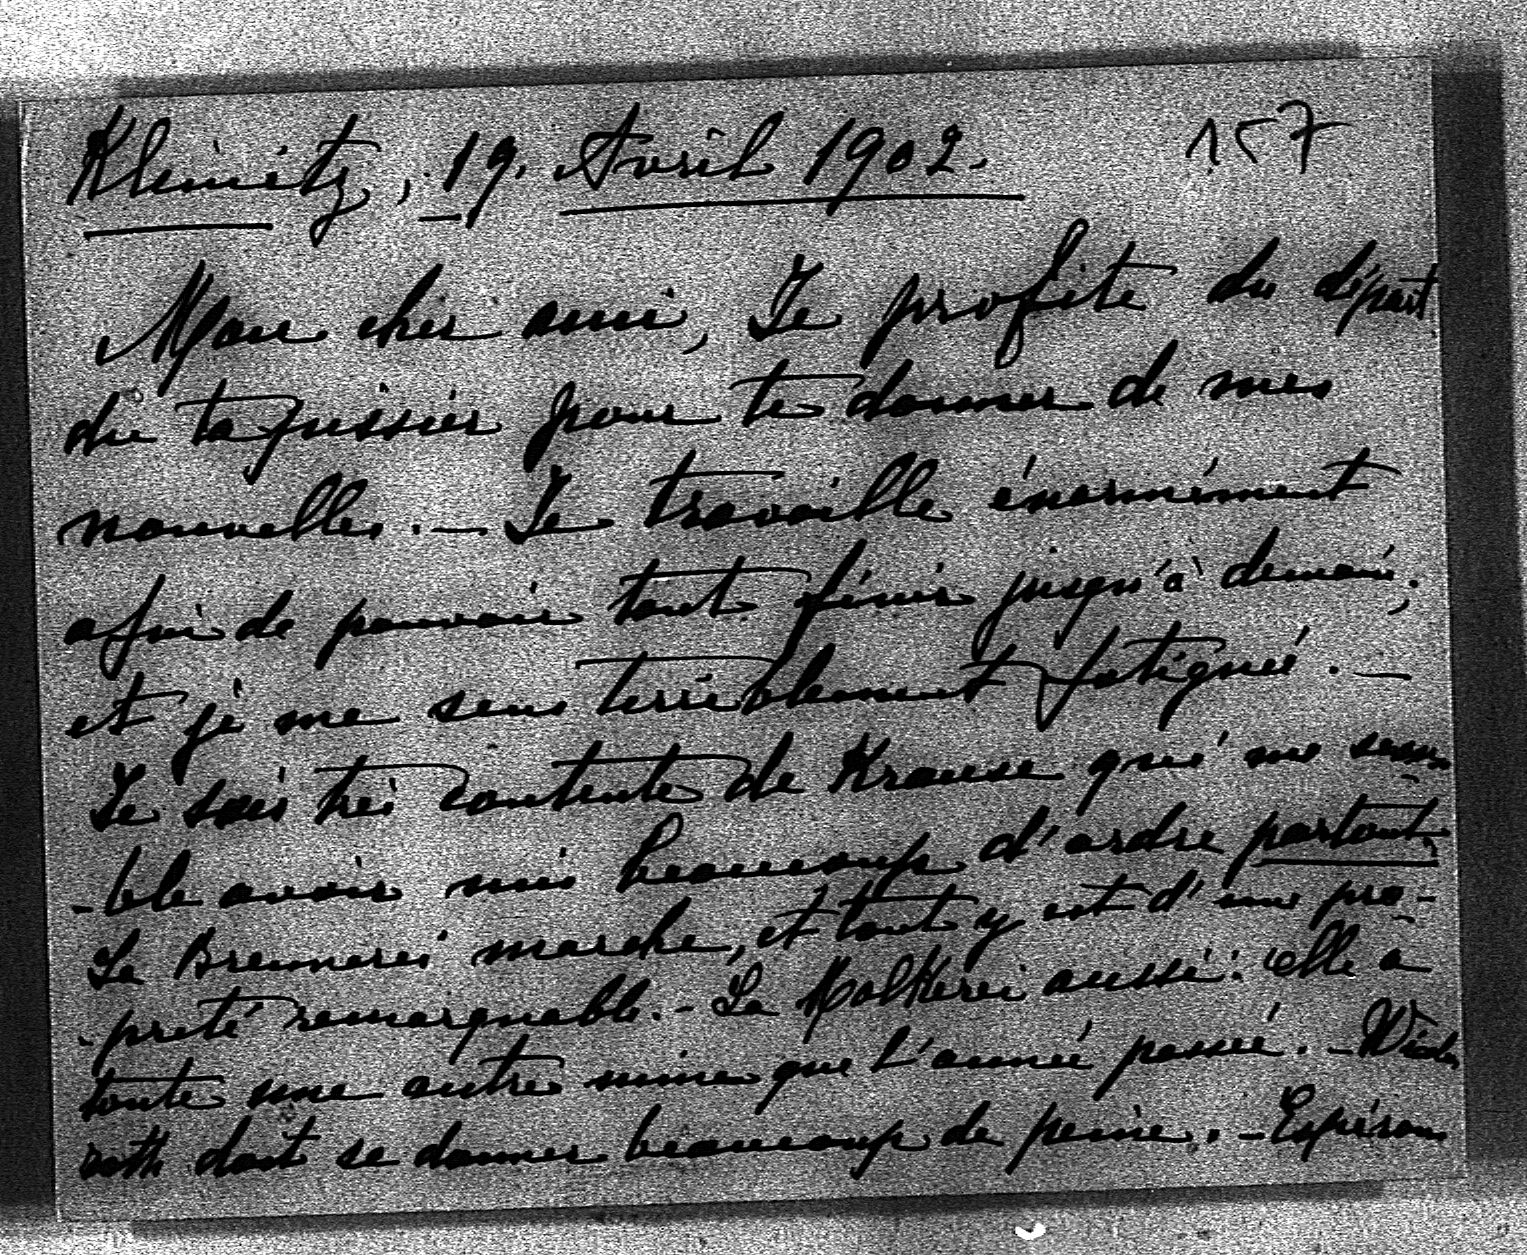 Klimitz, 19. Avril 1902. 157
Mon cher ami, Je profite du départ
du tapissier pour te donner de mes
nouvelles. — Je travaille énormément
afin de pouvoir tout finir jusqu'à demain;
et je me sens terriblement fatiguée. —
Je suis très contente de Krause qui me sem-
-ble avoir mis beaucoup d'ordre partout.
La Brennerei marche, et tout y est d'une pro-
-preté remarquable. - La Molkerei aussi: elle a
toute une autre mine que l'année passée. -
doit se donner beaucoup de peine. - Espérons